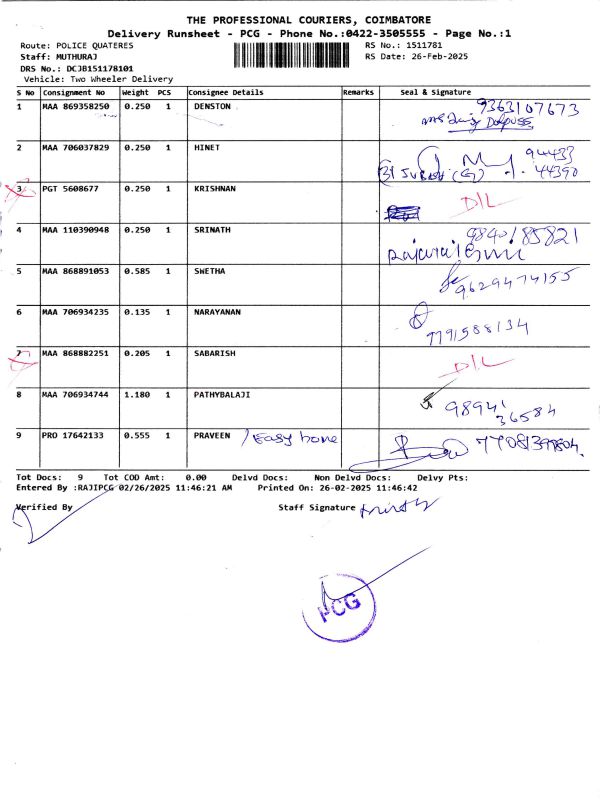 THE PROFESSIONAL COURIERS, COIMBATORE
Delivery Runsheet - PCG - Phone No.:0422-3505555 - Page No.:1
Route: POLICE QUATERES RS No.: 1511781
Staff: MUTHURAJ RS Date: 26-Feb-2025
DRS No.: DCJB151178101
Vehicle: Two Wheeler Delivery
S No Consignment No Weight PCS Consignee Details Remarks Seal & Signature
1 MAA 869358250 0.250 1 DENSTON 9363107673
2 MAA 706037829 0.250 1 HINET 94433
44390
3 PGT 5608677 0.250 1 KRISHNAN D/L
4 MAA 110390948 0.250 1 SRINATH 9840185821
5 MAA 868891053 0.585 1 SWETHA 9629474155
6 MAA 706934235 0.135 1 NARAYANAN 7791588134
7 MAA 868882251 0.205 1 SABARISH D/L
8 MAA 706934744 1.180 1 PATHYBALAJI 98941
36584
9 PRO 17642133 0.555 1 PRAVEEN / Easy home
Tot Docs: 9 Tot COD Amt: 0.00 Delvd Docs: Non Delvd Docs: Delvy Pts:
Entered By :RAJIPCG 02/26/2025 11:46:21 AM Printed On: 26-02-2025 11:46:42
Verified By Staff Signature
PCG